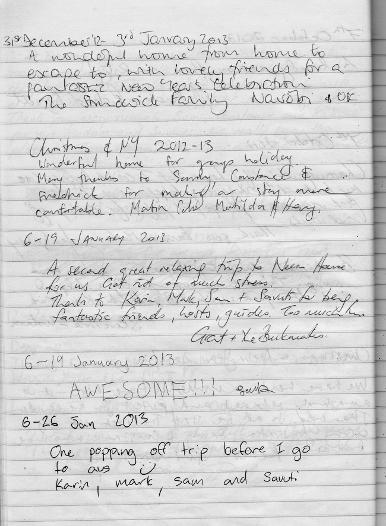 31st December 12 - 3rd January 2013
A wonderful home from home to
escape to, with lovely friends for a
fantastic New Years celebration
The Family Nairobi & UK
Christmas & NY 2012-13
Wonderful home for group holiday.
Many thanks to Sandy Constance &
Fredrick for making our stay more
comfortable. Martin Matilda & Henry.
6-19 JANUARY 2013.
A second great relaxing trip to House
for us Got rid of much stress.
Thanks to Karin, Mark, Sam + Savuti for being
fantastic friends, hosts, guides. Too much
Grant +
6-19 January 2013.
AWESOME!!!
6-26 Jan 2013
One popping off trip before I go
to aus
Karin, mark, sam and Savuti